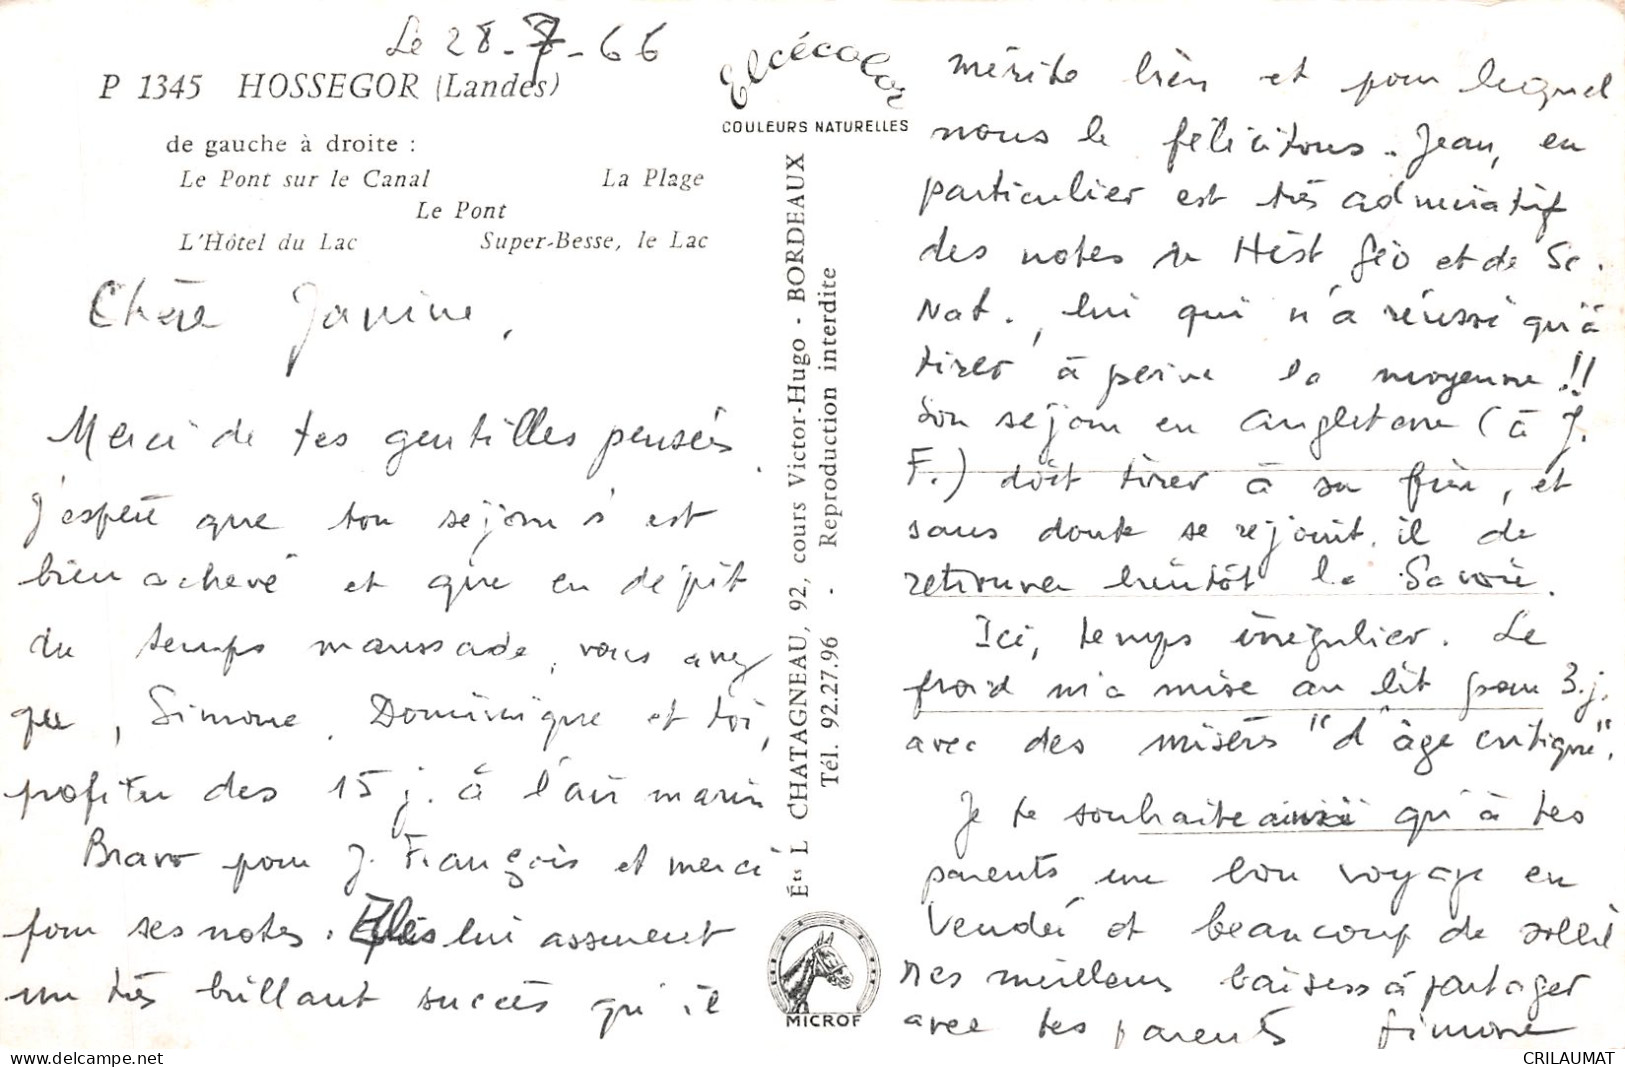 Le 28-7-66
P 1345 HOSSEGOR (Landes)
de gauche à droite :
Le Pont sur le Canal La Plage
Le Pont
L'Hôtel du Lac Super-Besse, le Lac
Chère Janine,
Merci de tes gentilles pensées.
J'espère que ton séjour s'est
bien achevé et que en dépit
du temps maussade, vous avez
pu, Simone, Dominique et toi,
profiter des 15 j. à l'air marin
Bravo pour J. François et merci
pour ses notes. Elles lui assurent
un très brillant succès qu'il
Elcécolor
COULEURS NATURELLES
Éts L CHATAGNEAU, 92, cours Victor-Hugo - BORDEAUX
Tél. 92.27.96 - Reproduction interdite
MICROF
mérite bien et pour lequel
nous le félicitons. Jean, en
particulier est très admiratif
des notes en Hist Géo et de Sc.
Nat., lui qui n'a réussi qu'à
tirer à peine la moyenne !!
Son séjour en Angleterre (à J.
F.) doit tirer à sa fin, et
sans doute se réjouit il de
retrouver bientôt la Savoie.
Ici, temps irrégulier. Le
froid m'a mise au lit pour 3 j.
avec des misères "d'âge critique".
Je te souhaite ainsi qu'à tes
parents un bon voyage en
Vendée et beaucoup de soleil
Mes meilleurs baisers à partager
avec tes parents Simone
CRILAUMAT